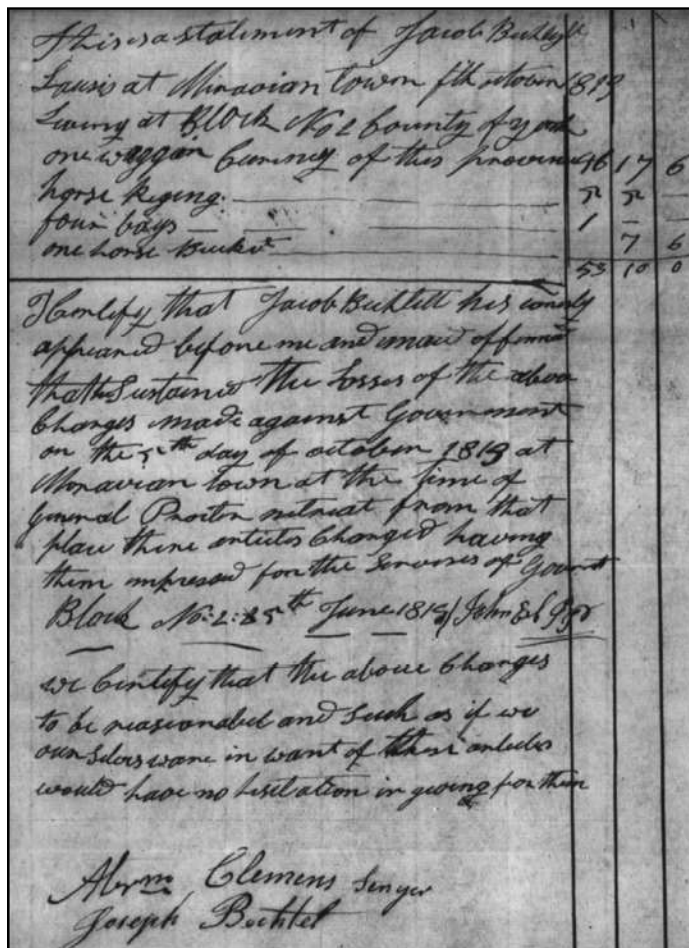 This is a statement of Jacob Bechtels
Lausis at Moravian town 5th october 1813
Living at Block No 2 County of york
one waggan Curency of this province 46 17 6
horse Reging 5 5 —
four bags 1 — —
one horse Bucket 7 6
53 10 0
I Certefy that Jacob Bechtell has
appeared before me and made
that he Sustained the Losses of the above
Charges made against Government
on the 5th day of october 1813 at
Moravian town at the time of
General Procter retreat from that
place there articles Charged having
them impressed for the Servises of Govert
Block No: 2: 25th June 1815 John Erb
we Certify that the above Charges
to be reasionabel and Such as if we
our Selves ware in want of these articles
would have no hesitation in giveing for them
Abrm Clemens Senyer
Joseph Bechtel